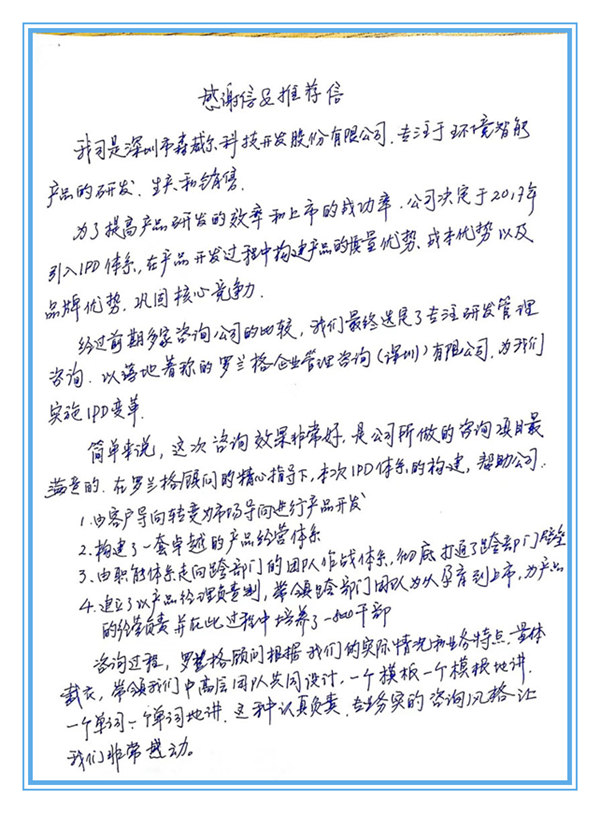 感谢信及推荐信
我司是深圳市森威尔科技开发股份有限公司、专注于环境智能
产品的研发、生产和销售.
为了提高产品研发的效率和上市的成功率.公司决定于2017年
引入IPD体系,在产品开发过程中构建产品的质量优势、成本优势以及
品牌优势、巩固核心竞争力.
经过前期多家咨询公司的比较,我们最终选定了专注研发管理
咨询、以落地着称的罗兰格企业管理咨询(深圳)有限公司,为我们
实施IPD变革.
简单来说,这次咨询效果非常好,是公司所做的咨询项目最
满意的.在罗兰格顾问的精心指导下,本次IPD体系的构建,帮助公司.
1.由客户导向转变为市场导向进行产品开发
2.构建了一套卓越的产品经营体系
3.由职能体系走向跨部门的团队作战体系,彻底打通了跨部门壁垒
4.建立了以产品经理负责制,带领跨部门团队为从孕育到上市,为产品
的经营负责并在此过程中培养了一些干部
咨询过程,罗兰格顾问根据我们的实际情况和业务特点.量体
裁衣,带领我们中高层团队共同设计,一个模板一个模板地讲.
一个单词一个单词地讲.这种认真负责、专业务实的咨询风格让
我们非常感动。